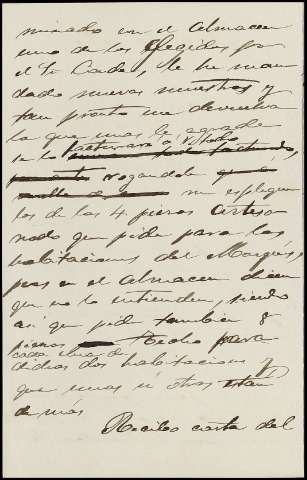 minado en el Almacen
uno de los elegidos por
el Sr Conde, le he man
dado nuevas muestras y
tan pronto me devuelva
la que mas le agrade
se lo facturaré a
rogandole
me esplique
los de las 4 piezas arteso
nado que pide para las
habitaciones del Marqués,
pues en el Almacen dicen
que no lo entienden, siendo
asi que pide tambien 8
piezas Techo para
cada una de
dichas dos habitaciones y
que unas ú otras estan
de más
Recibo carta del